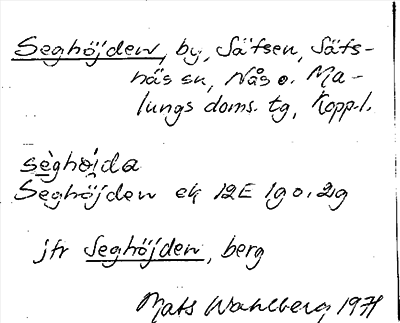 Seghöjden, by, Säfsen, Säfs-
näs sn, Nås o. Ma-
lungs doms. tg, Kopp.l.
sèghöi̯da
Seghöjden ek 12E 1g o. 2g
jfr Seghöjden, berg
Mats Wahlberg 1971